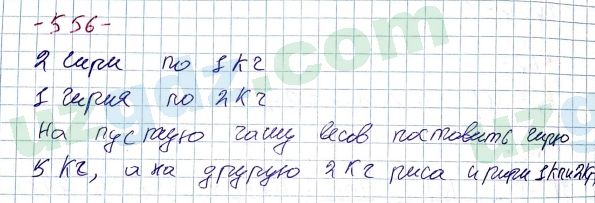 -556-
2 гири по 1 кг
1 гиря по 2 кг
На пустую чашу весов поставить гирю
5 кг, а на другую 2 кг риса и гири 1кг и 2кг